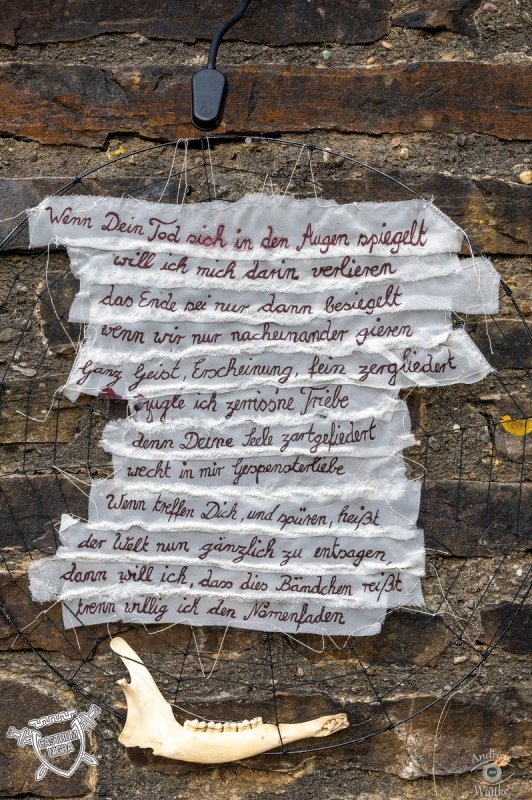 Wenn Dein Tod sich in den Augen spiegelt
will ich mich darin verlieren
das Ende sei nur dann besiegelt
wenn wir nur nacheinander gieren
Ganz Geist, Erscheinung, fein zergliedert
zeugte ich zerrissne Triebe
denn Deine Seele zartgefiedert
weckt in mir Gespensterliebe
Wenn treffen Dich, und spüren, heißt
der Welt nun gänzlich zu entsagen,
dann will ich, dass dies Bändchen reißt
trenn willig ich den Nornenfaden
CASTRUM
NIGRA
Andre
Wuttke